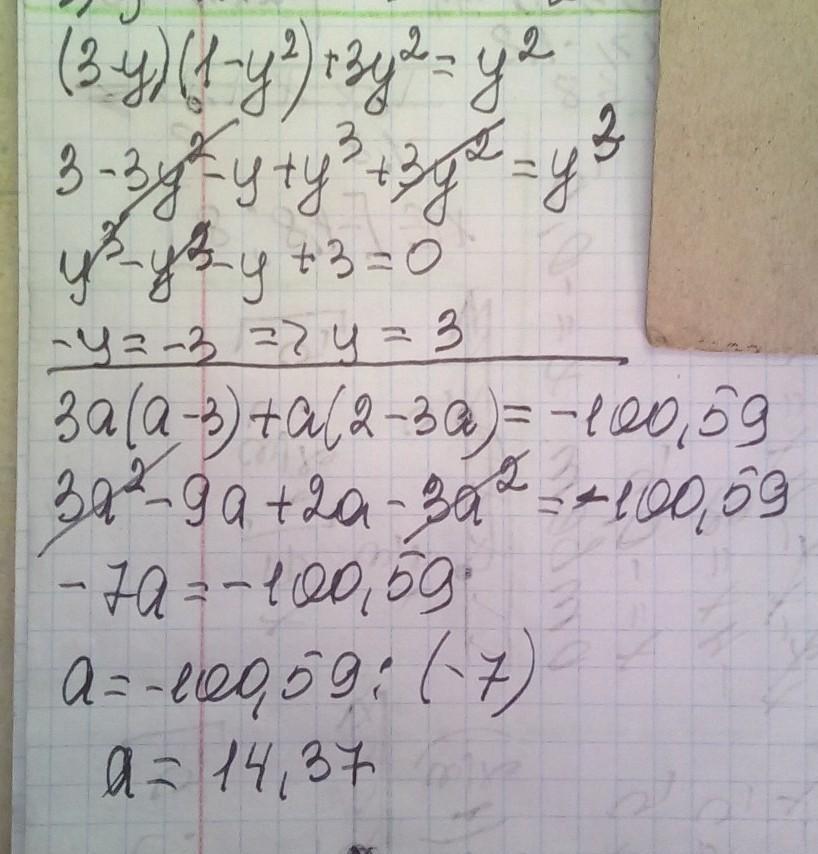 (3-y)(1-y²)+3y²=y²
3-3y²-y+y³+3y²=y³
y³-y³-y+3=0
-y=-3 => y=3
3a(a-3)+a(2-3a)=-100,59
3a²-9a+2a-3a²=-100,59
-7a=-100,59
a=-100,59:(-7)
a=14,37